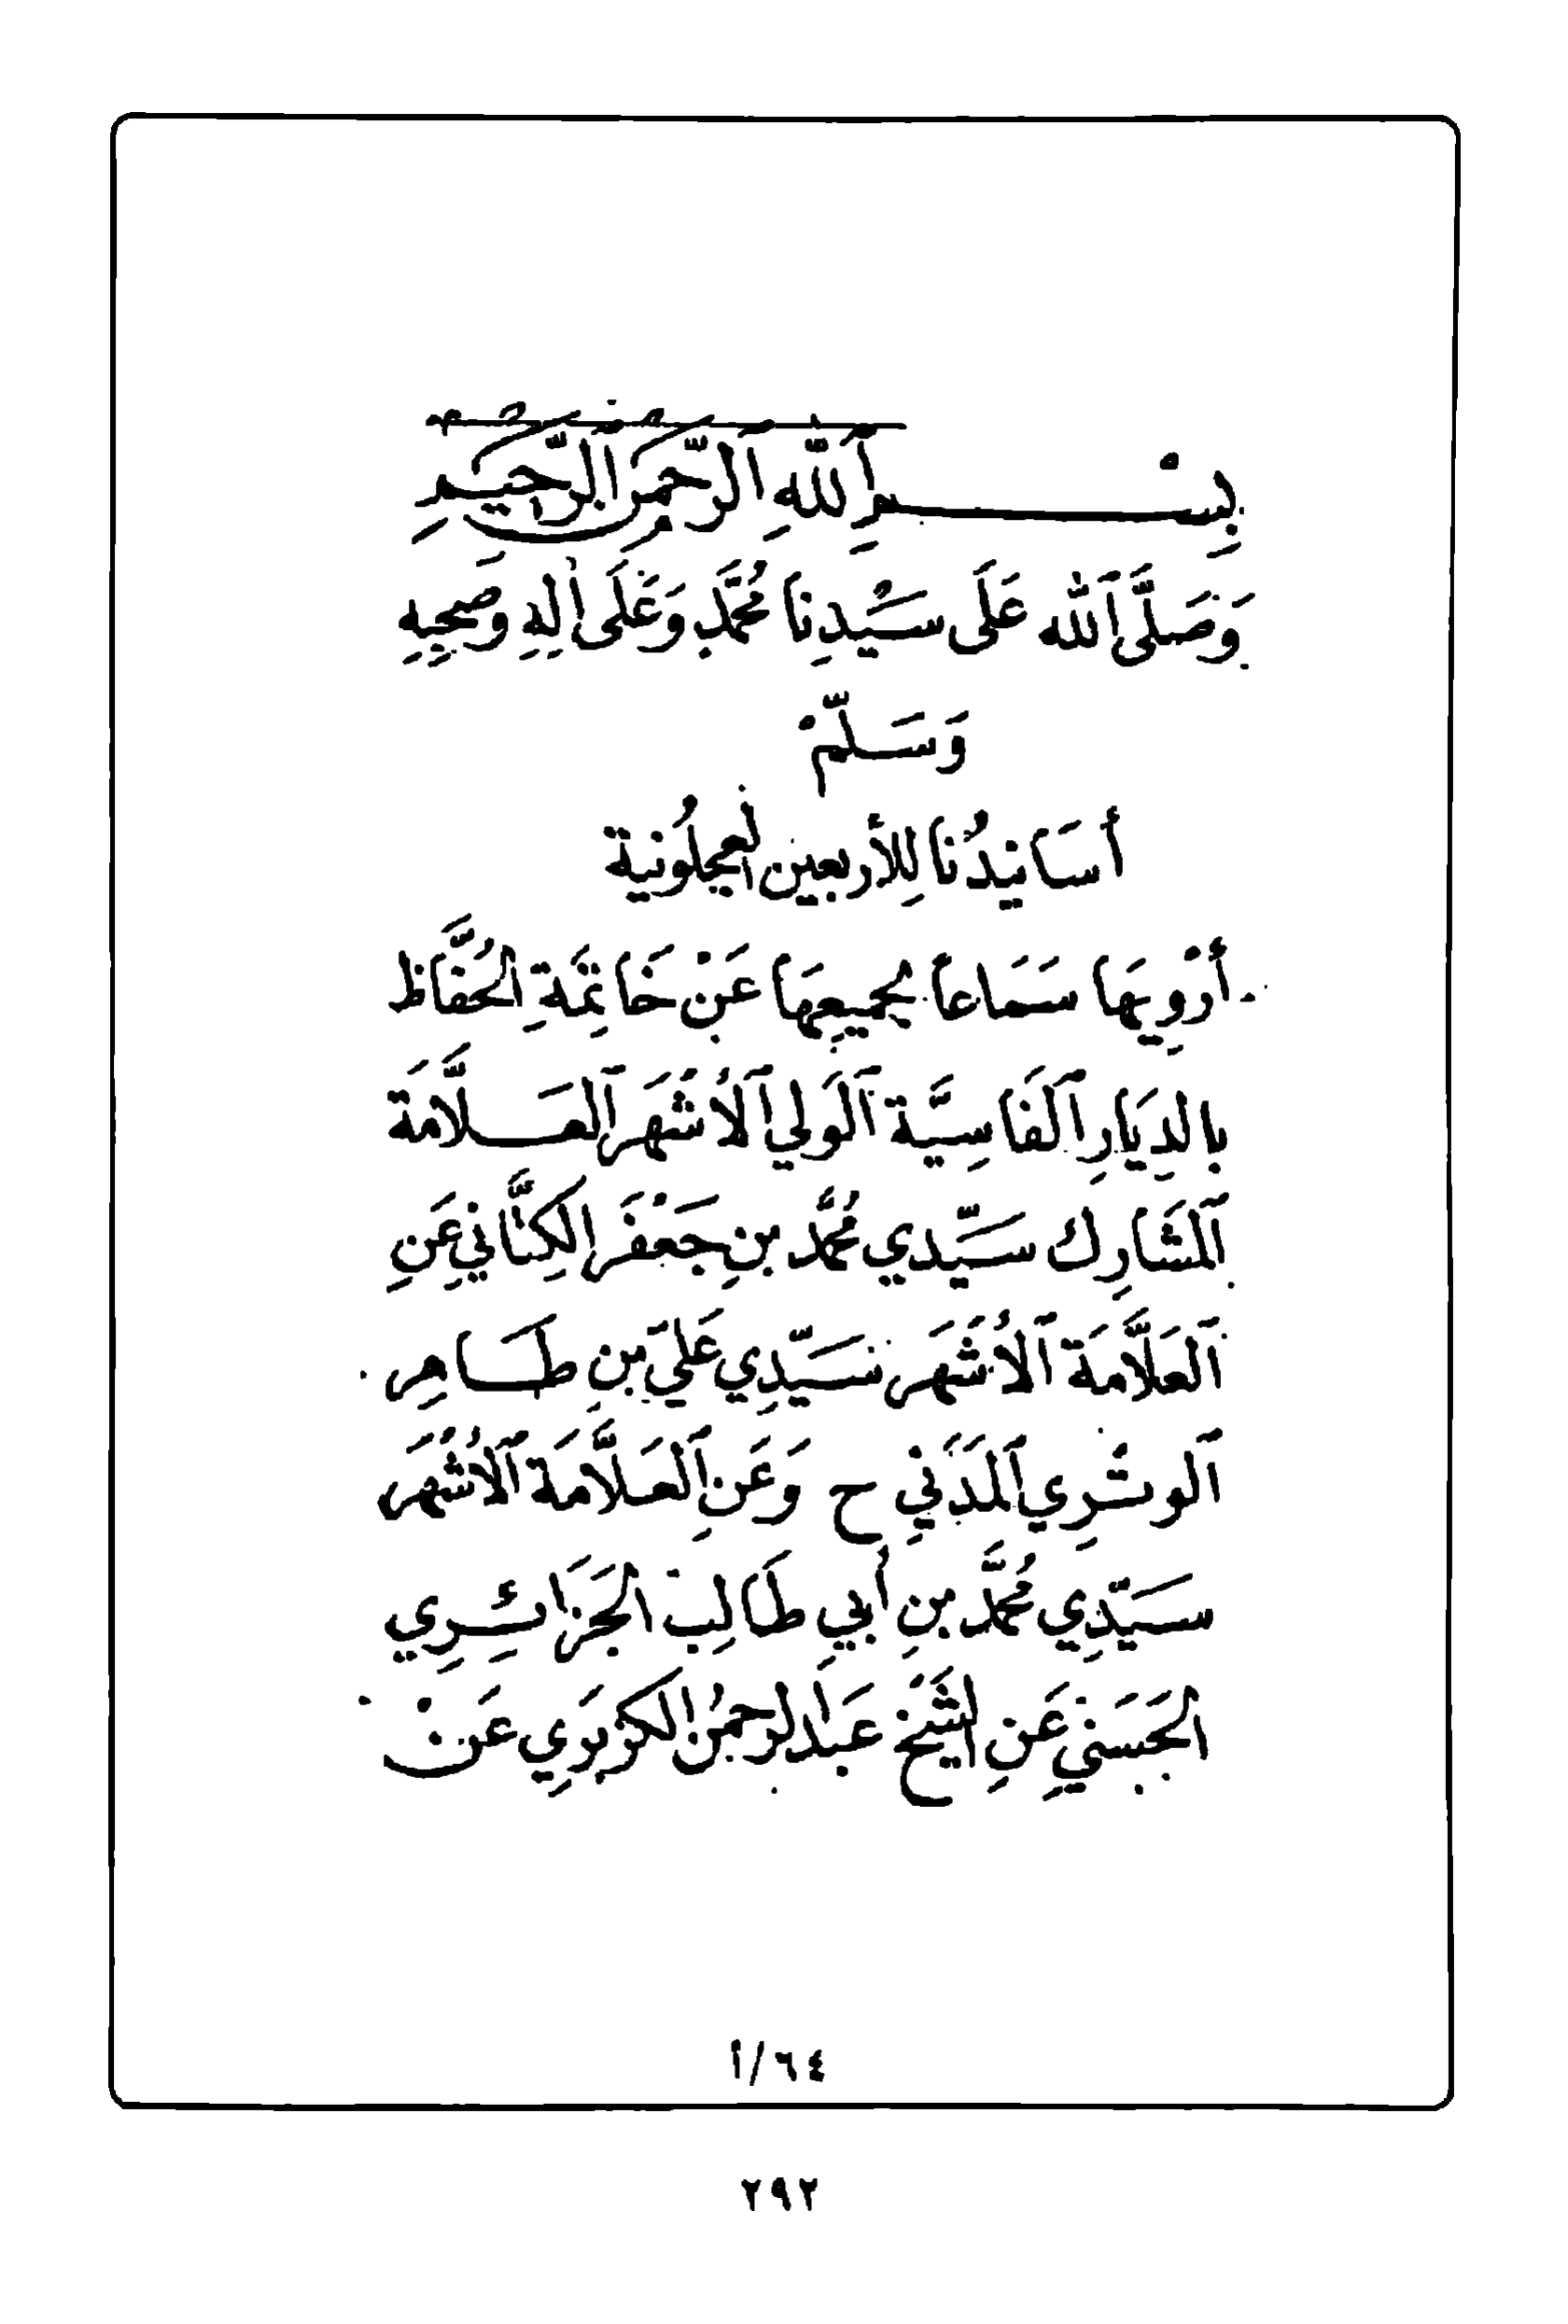 بِسْمِ اَللَّهِ اَلرَّحْمَنِ اَلرَّحِيمِ
وَصَلَّى اَللَّه عَلَى سَيِّدِنَا مُحَمَّدٍ وَعَلَى اٰلِهِ وَصَحْبِهِ
وَسَلَّمْ
أَسَانِيدُنَا لِلأَربعين العجلُونية
أَرْوِيهَا سَمَاعاً لجميعِهَا عَنْ خَاتِمَةِ الحُفَّاظ
بِالدِيَارِ اَلْفَاسِيَّة اَلْوَلي اَلأَشْهَر اَلْعَلَّامَة
اَلْمُشَارِك سَيِّدي مُحَمَّد بنِ جَعْفَر الكِتَّانِي عَنِ
اَلْعَلَّامَة اَلأَشْهَر سَيِّدِي عَلِيِّ بنِ طَاهِر
اَلوِترِي اَلْمَدَنِي ح وَعَنِ اَلْعَلَّامَة اَلأَشْهَر
سَيِّدِي مُحَمَّد بنِ أَبِي طَالِب الجَزَائِرِي
الحَسَنِي عَنِ الشَّيْخ عَبد الرحمن الكزبَرِي عَنْ
١/٦٤
٢٩٢